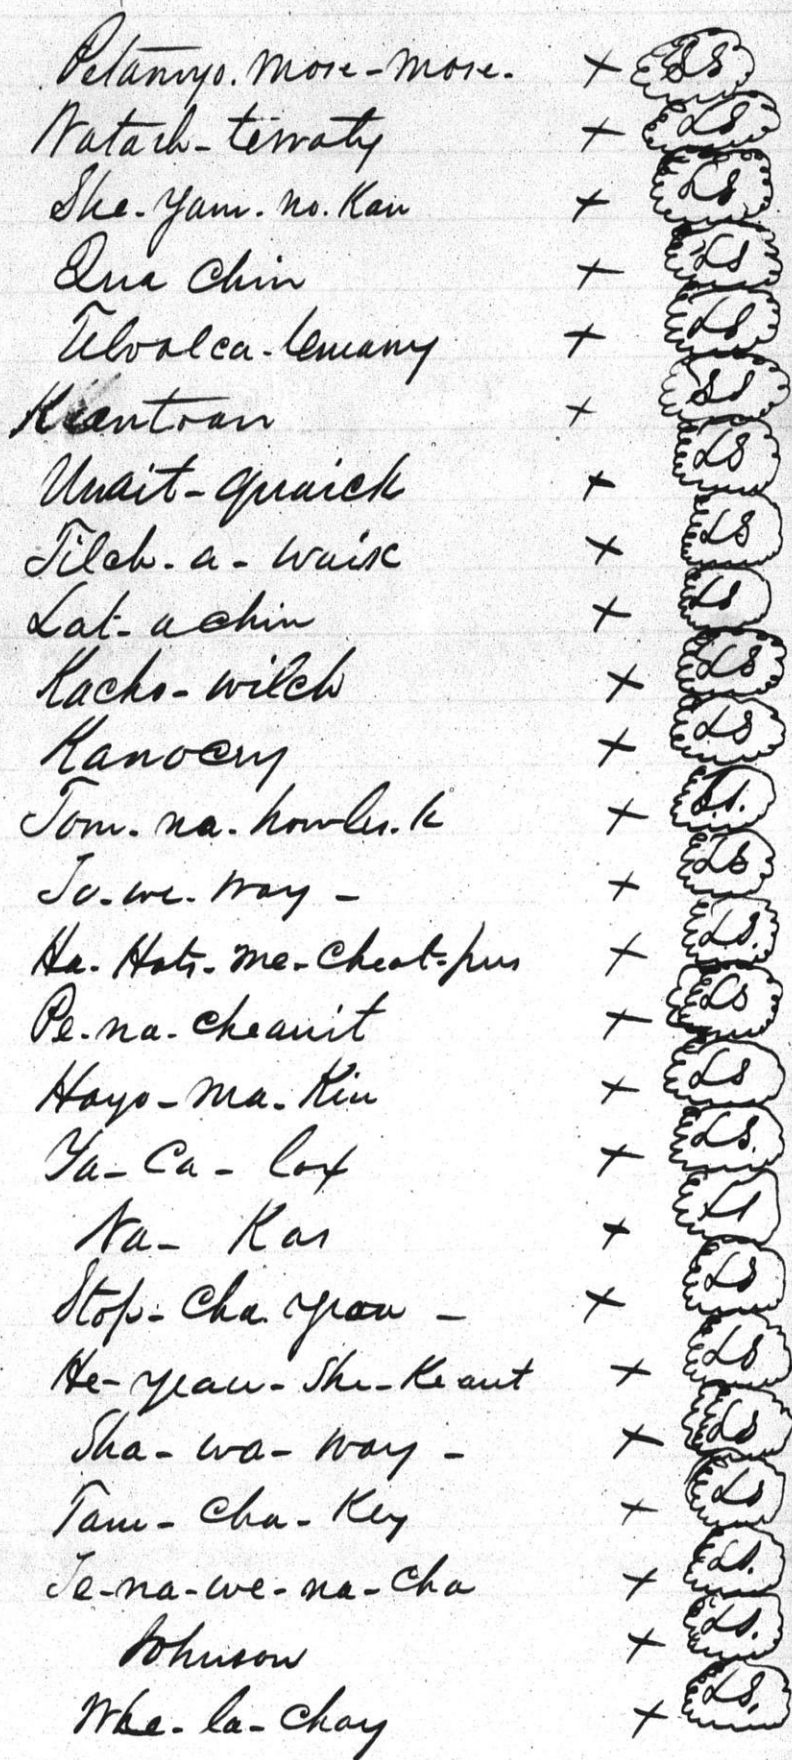 Petamyo. Mose-mose. × LS
Natach-tewaty × LS
She-yam-no. Kan × LS
Qua chin × LS
lemany × LS
Kiantoan × LS
Unait-guaick × LS
Tilch-a-waix × LS
Lat-a chin × LS
Kacho-wilch × LS
Kanocey × LS
Som-na-howlis.k × L.S.
Ta-we-way - × LS
Ha-Hats-me-cheat-pus × LS.
Pe-na-cheanit × LS
Hayo-ma-Kin × LS
Ya-Ca-lox × LS.
Na- Kas × LS
Stop-cha yeou - × LS
He-yeau-she-Keaut × LS
Sha-wa-way - × LS
Tam-cha-Key × LS
Te-na-we-na-cha × LS.
Johnson × LS.
Whe-la-chey × LS.